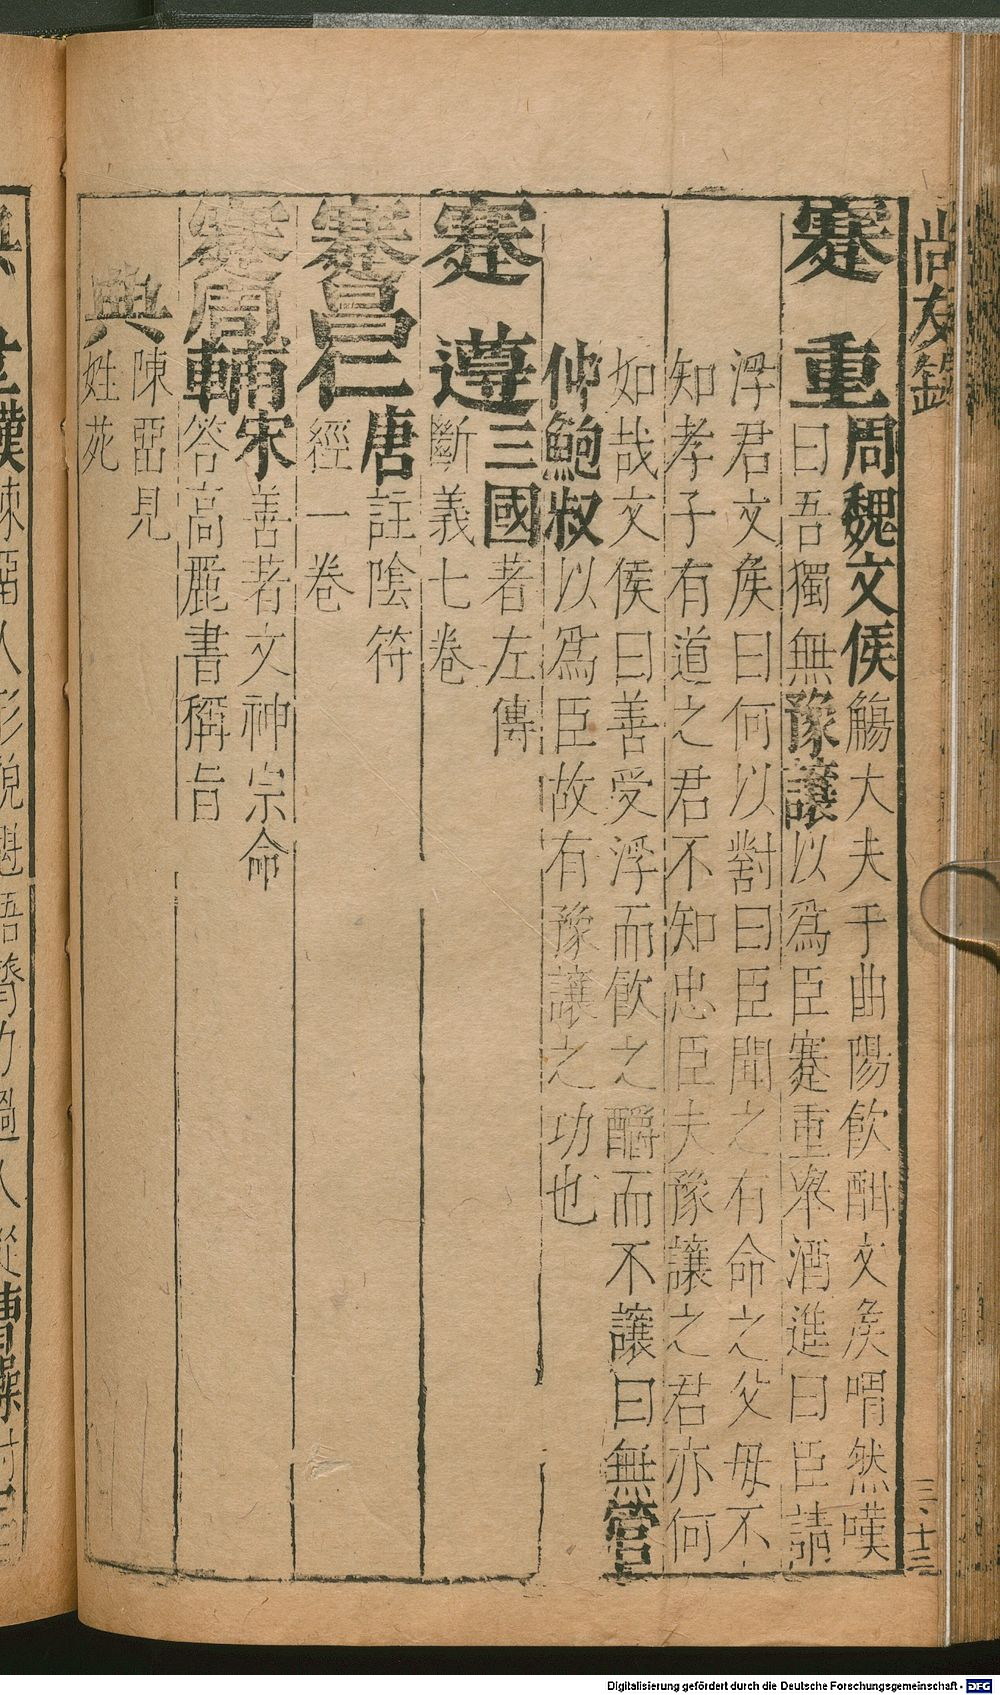 尚友錄
三、十三
蹇重周魏文侯觴大夫于曲陽飲酣文矦喟然嘆
曰吾獨無豫讓以爲臣蹇重舉酒進曰臣請
浮君文矦曰何以對曰臣聞之有命之父毋不
知孝子有道之君不知忠臣夫豫讓之君亦何
如哉文侯曰善受浮而飲之釂而不讓曰無管
仲鮑叔以爲臣故有豫讓之功也
蹇遵三國著左傳
斷義七卷
蹇昌仁唐註陰符
經一卷
蹇周輔宋善著文神宗命
答高麗書稱旨
典陳惡見
姓苑
Digitalisierung gefördert durch die Deutsche Forschungsgemeinschaft - DFG